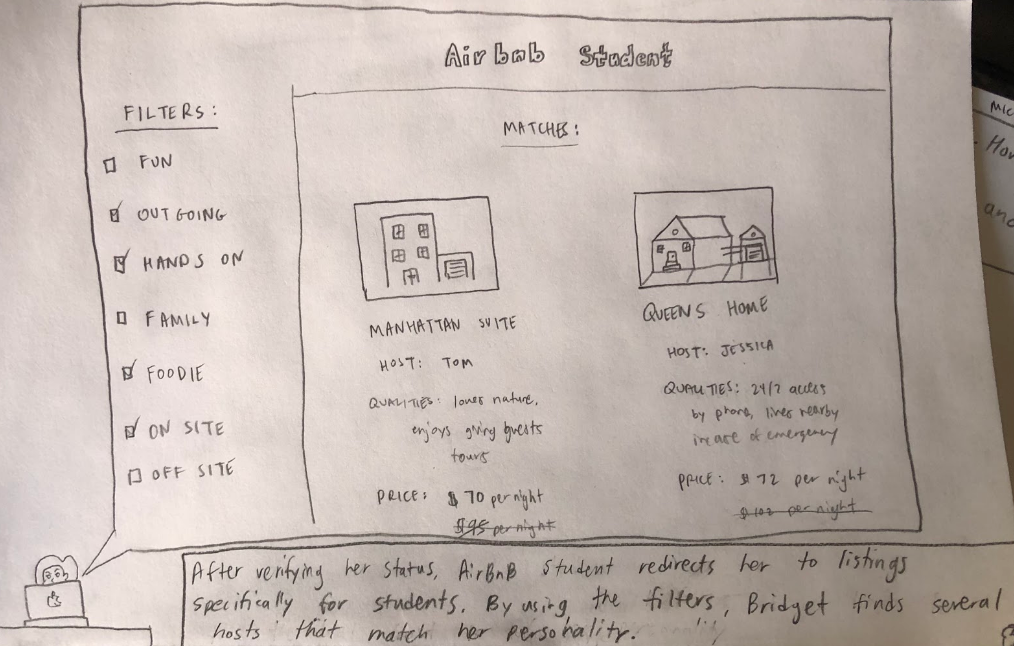 Airbnb Student
FILTERS:
FUN
OUTGOING
HANDS ON
FAMILY
FOODIE
ON SITE
OFF SITE
MATCHES:
MANHATTAN SUITE
HOST: TOM
QUALITIES: loves nature,
enjoys giving guests
tours
PRICE: $70 per night
$95 per night
QUEENS HOME
HOST: JESSICA
QUALITIES: 24/7 access
by phone, lives nearby
incase of emergency
PRICE: $72 per night
per night
After verifying her status, AirBnB Student redirects her to listings
specifically for students. By using the filters, Bridget finds several
hosts that match her personality.
MIC
How
and